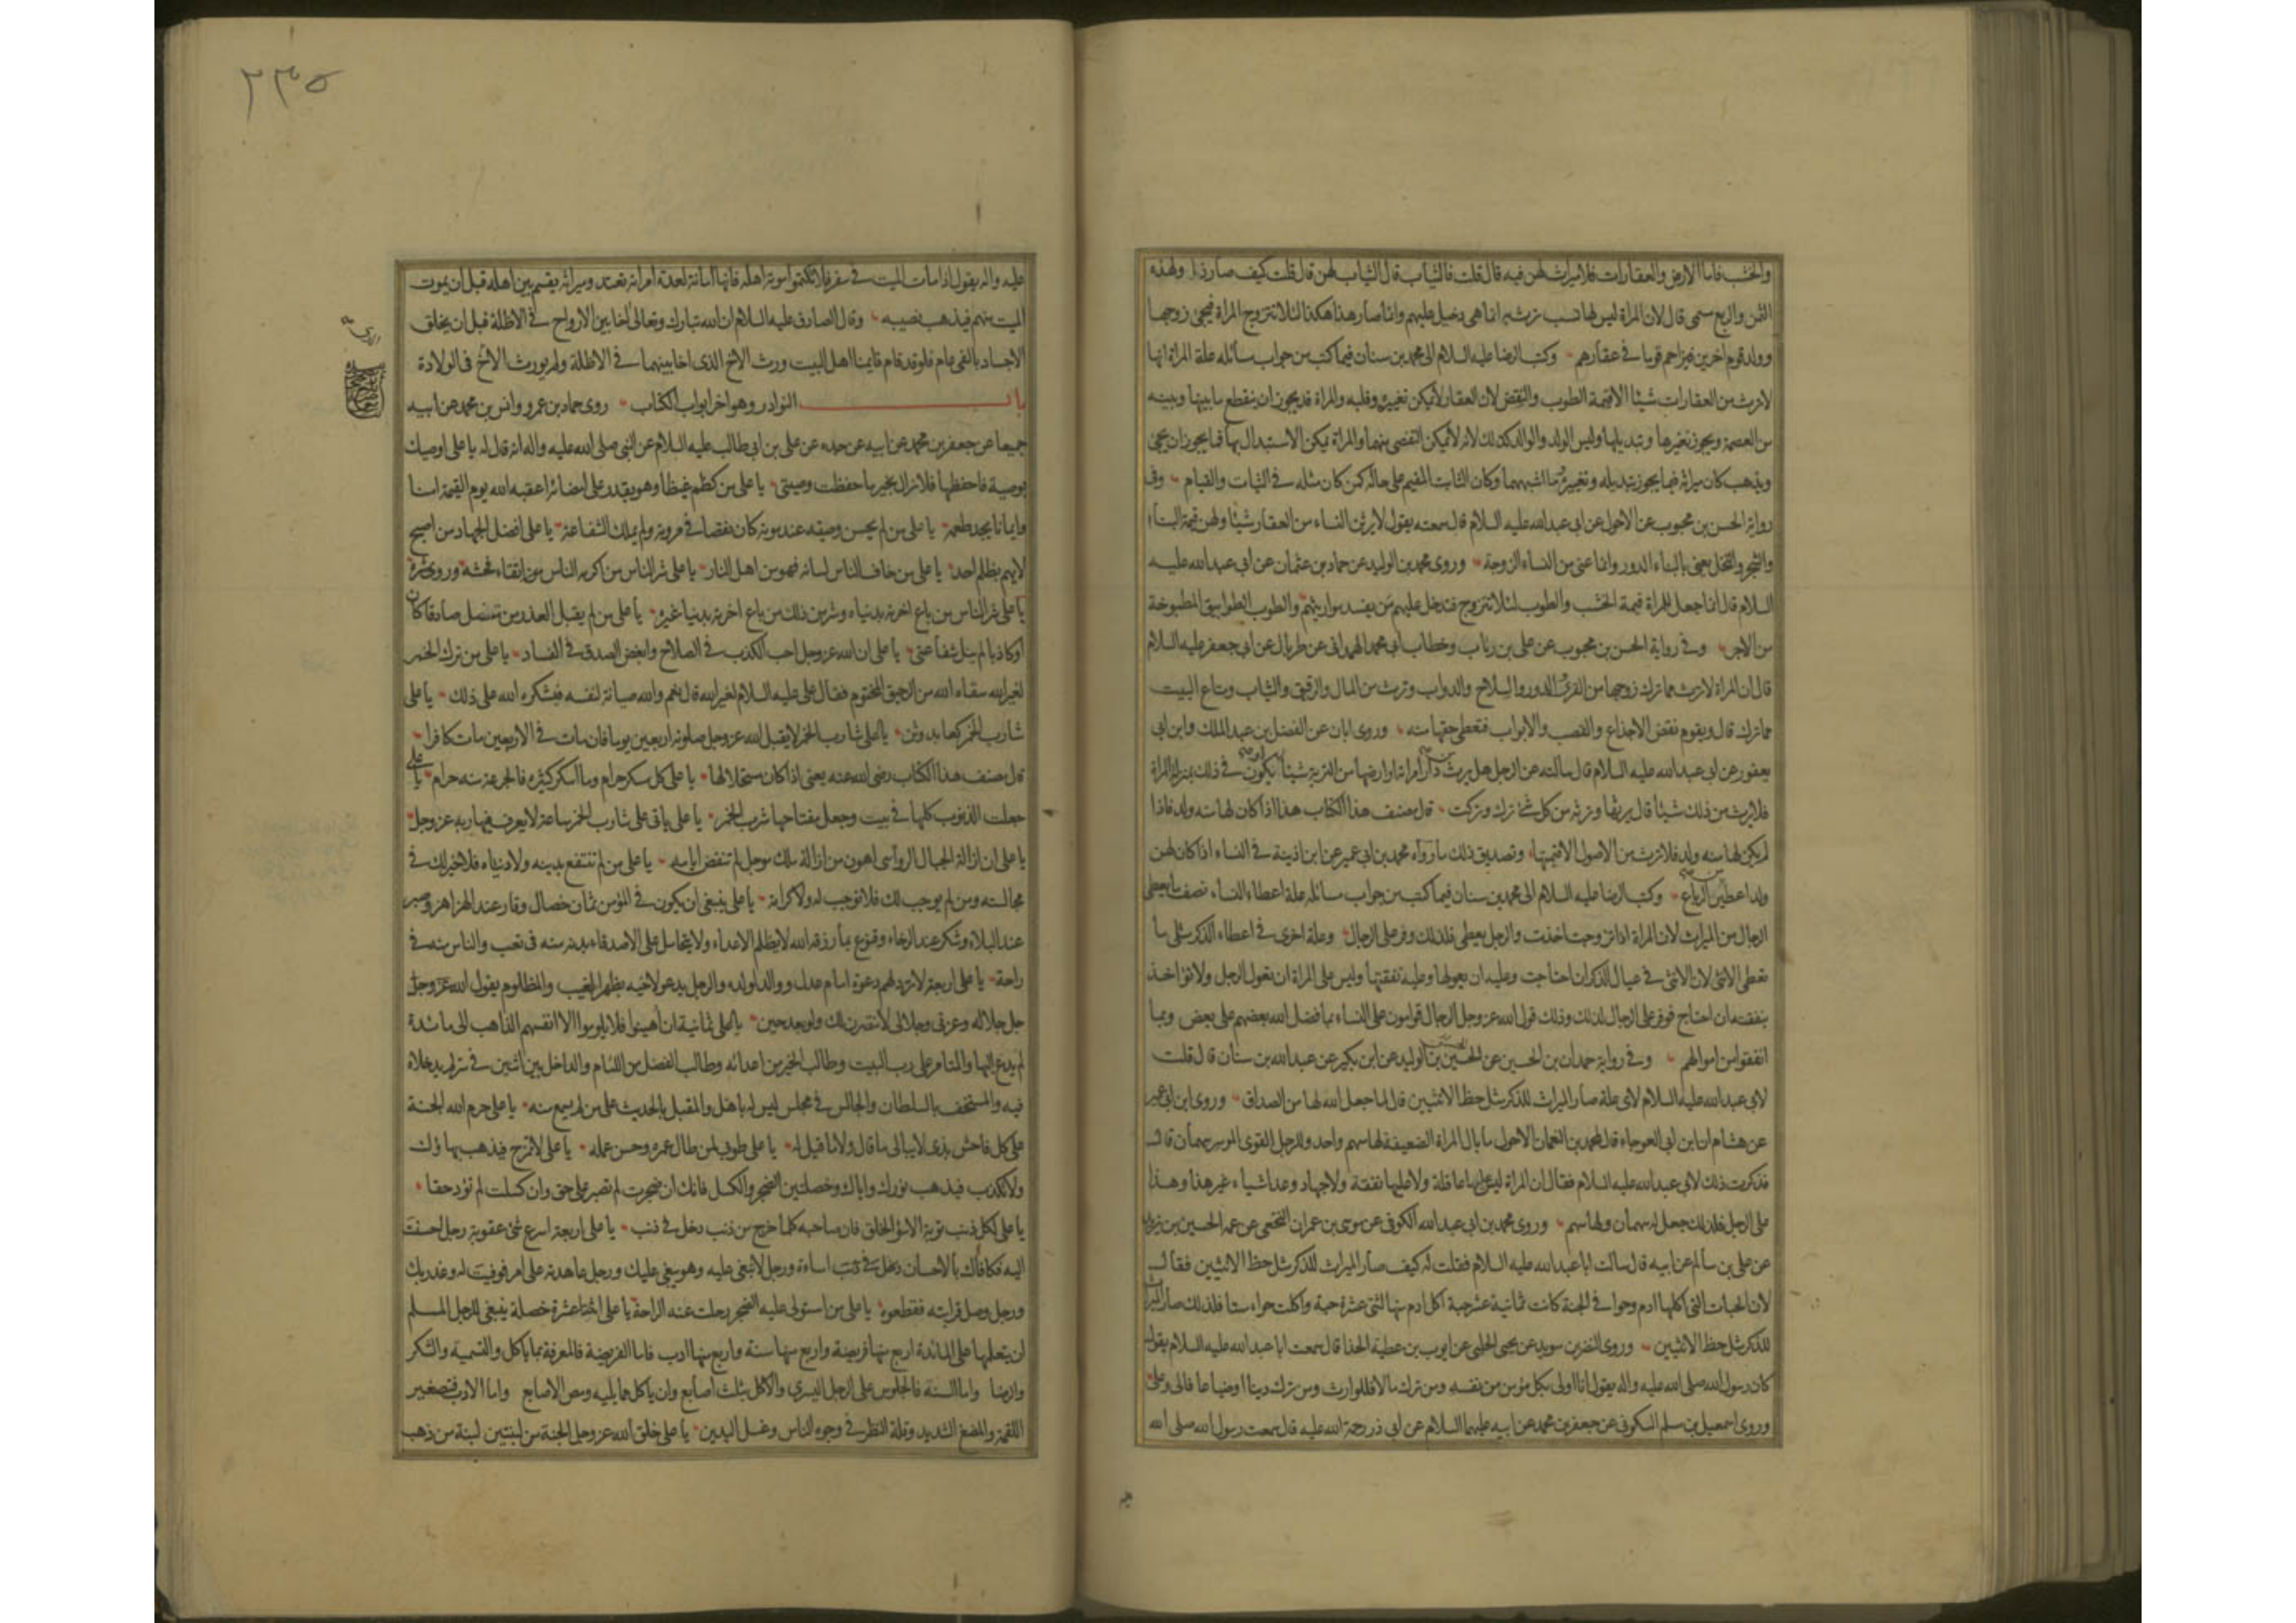 والخشب فاما الارض والعقارات فلا ميراث لهن فيه قال قلت فالثياب قال الثياب لهن قال قلت كيف صار ذا ولهذه
الثمن والربع مسمى قال لان المراة ليس لها نسب ترث به انما هي دخيل عليهم وانما صار هذا هكذا لئلا تتزوج المراة فيجئ زوجها
وولد قوم اخرين فيزاحم قوما في عقارهم وكتب الرضا عليه السلام الى محمد بن سنان فيما كتب من جواب مسائله علة المراة انها
لا ترث من العقارات شيئا الا قيمة الطوب والنقض لان العقار لا يمكن تغييره وقلبه والمراة قد يجوز ان ينقطع ما بينها وبينه
من العصمة ويجوز تغيرها وتبديلها وليس الولد والوالد كذلك لانه لا يمكن التفصى منهما والمراة يمكن الاستبدال بها فما يجوز ان يجئ
ويذهب كان ميراثه فيما يجوز تبديله وتغييره ما اشبههما وكان الثابت المقيم على حاله كمن كان مثله في الثبات والقيام وفي
رواية الحسن بن محبوب عن الاحول عن ابي عبد الله عليه السلام قال سمعته يقول لا يرثن النساء من العقار شيئا ولهن قيمة البناء
والشجر والنخل يعني بالبناء الدور وانما عنى من النساء الزوجة وروى محمد بن الوليد عن حماد بن عثمان عن ابي عبد الله عليه
السلام قال انما جعل للمراة قيمة الخشب والطوب لئلا تتزوج فتدخل عليهم من يفسد مواريثهم والطوب الطوابيق المطبوخة
من الاجر وفي رواية الحسن بن محبوب عن علي بن رئاب وخطاب ابي محمد الهمداني عن طربال عن ابي جعفر عليه السلام
قال ان المراة لا ترث مما ترك زوجها من القرى والدور والسلاح والدواب وترث من المال والرقيق والثياب ومتاع البيت
مما ترك قال ويقوم نقض الاجذاع والقصب والابواب فتعطى حقها منه وروى ابان عن الفضل بن عبد الملك وابن ابي
يعفور عن ابي عبد الله عليه السلام قال سالته عن الرجل هل يرث من دار امراته او ارضها من التربة شيئا او يكون في ذلك بمنزلة المراة
فلا يرث من ذلك شيئا قال يرثها وترثه من كل شئ ترك وتركت قال مصنف هذا الكتاب هذا اذا كان لها منه ولد فاذا
لم يكن لها منه ولد فلا ترث من الاصول الا قيمتها وتصديق ذلك ما رواه محمد بن ابي عمير عن ابن اذينة في النساء اذا كان لهن
ولد اعطين من الرباع وكتب الرضا عليه السلام الى محمد بن سنان فيما كتب من جواب مسائله علة اعطاء النساء نصف ما يعطى
الرجال من الميراث لان المراة اذا تزوجت اخذت والرجل يعطى فلذلك وفر على الرجال وعلة اخرى في اعطاء الذكر مثلى ما
تعطى الانثى لان الانثى في عيال الذكر ان احتاجت وعليه ان يعولها وعليه نفقتها وليس على المراة ان تعول الرجل ولا تؤاخذ
بنفقته ان احتاج فوفر على الرجال لذلك وذلك قول الله عز وجل الرجال قوامون على النساء بما فضل الله بعضهم على بعض وبما
انفقوا من اموالهم وفي رواية حمدان بن الحسين عن الحسين بن الوليد عن ابن بكير عن عبد الله بن سنان قال قلت
لابي عبد الله عليه السلام لاي علة صار الميراث للذكر مثل حظ الانثيين قال لما جعل الله لها من الصداق وروى ابن ابي عمير
عن هشام ان ابن ابي العوجاء قال لمحمد بن النعمان الاحول ما بال المراة الضعيفة لها سهم واحد وللرجل القوي الموسر سهمان قال
فذكرت ذلك لابي عبد الله عليه السلام فقال ان المراة ليس لها عاقلة ولا عليها نفقة ولا جهاد وعد اشياء غير هذا وهذا
على الرجل فلذلك جعل له سهمان ولها سهم وروى محمد بن ابي عبد الله الكوفي عن موسى بن عمران النخعي عن عمه الحسين بن يزيد
عن علي بن سالم عن ابيه قال سالت ابا عبد الله عليه السلام فقلت له كيف صار الميراث للذكر مثل حظ الانثيين فقال
لان الحبات التي اكلها ادم وحوا في الجنة كانت ثمانية عشر حبة اكل ادم منها اثنتى عشرة حبة واكلت حواء ستا فلذلك صار الميراث
للذكر مثل حظ الانثيين وروى النضر بن سويد عن يحيى الحلبي عن ايوب بن عطية الحذا قال سمعت ابا عبد الله عليه السلام يقول
كان رسول الله صلى الله عليه واله يقول انا اولى بكل مؤمن من نفسه ومن ترك مالا فللوارث ومن ترك دينا او ضياعا فالى وعلى
وروى اسمعيل بن مسلم السكوني عن جعفر بن محمد عن ابيه عليهما السلام عن ابي ذر رحمة الله عليه قال سمعت رسول الله صلى الله
٢٣٥
عليه واله يقول اذا مات الميت في سفر فلا تكتموا موته اهله فانها امانة لعدة امراته تعتد وميراثه يقسم بين اهله قبل ان يموت
الميت منهم فيذهب نصيبه وقال الصادق عليه السلام ان الله تبارك وتعالى اخا بين الارواح في الاظلة قبل ان يخلق
الاجساد بالفي عام فلو قد قام قايمنا اهل البيت ورث الاخ الذي اخا بينهما في الاظلة ولم يورث الاخ في الولادة
باب النوادر وهو اخر ابواب الكتاب روى حماد بن عمرو وانس بن محمد عن ابيه
جميعا عن جعفر بن محمد عن ابيه عن جده عن علي بن ابي طالب عليه السلام عن النبي صلى الله عليه واله انه قال له يا علي اوصيك
بوصية فاحفظها فلا تزال بخير ما حفظت وصيتي يا علي من كظم غيظا وهو يقدر على امضائه اعقبه الله يوم القيمة امنا
وايمانا يجد طعمه يا علي من لم يحسن وصيته عند موته كان نقصا في مروته ولم يملك الشفاعة يا علي افضل الجهاد من اصبح
لا يهم بظلم احد يا علي من خاف الناس لسانه فهو من اهل النار يا علي شر الناس من اكرمه الناس من اتقاء فحشه وروى شره
يا علي شر الناس من باع اخرته بدنياه وشر من ذلك من باع اخرته بدنيا غيره يا علي من لم يقبل العذر من متنصل صادقا كان
او كاذبا لم ينل شفاعتي يا علي ان الله عز وجل احب الكذب في الصلاح وابغض الصدق في الفساد يا علي من ترك الخمر
لغير الله سقاه الله من الرحيق المختوم فقال علي عليه السلام لغير الله قال نعم والله صيانة لنفسه فيشكره الله على ذلك يا علي
شارب الخمر كعابد وثن يا علي شارب الخمر لا يقبل الله عز وجل صلوته اربعين يوما فان مات في الاربعين مات كافرا
قال مصنف هذا الكتاب رضي الله عنه يعني اذا كان مستحلا لها يا علي كل مسكر حرام وما اسكر كثيره فالجرعة منه حرام يا علي
جعلت الذنوب كلها في بيت وجعل مفتاحها شرب الخمر يا علي ياتي على شارب الخمر ساعة لا يعرف فيها ربه عز وجل
يا علي ان ازالة الجبال الرواسي اهون من ازالة ملك موجل لم تنقض ايامه يا علي من لم تنتفع بدينه ولا دنياه فلا خير لك في
مجالسته ومن لم يوجب لك فلا توجب له ولا كرامة يا علي ينبغي ان يكون في المؤمن ثمان خصال وقار عند الهزاهز وصبر
عند البلاء وشكر عند الرخاء وقنوع بما رزقه الله لا يظلم الاعداء ولا يتحامل على الاصدقاء بدنه منه في تعب والناس منه في
راحة يا علي اربعة لا ترد لهم دعوة امام عدل ووالد لولده والرجل يدعو لاخيه بظهر الغيب والمظلوم يقول الله عز وجل
جل جلاله وعزتي وجلالي لانتصرن لك ولو بعد حين يا علي ثمانية ان اهينوا فلا يلوموا الا انفسهم الذاهب الى مائدة
لم يدع اليها والمتامر على رب البيت وطالب الخير من اعدائه وطالب الفضل من اللئام والداخل بين اثنين في سر لم يدخلاه
فيه والمستخف بالسلطان والجالس في مجلس ليس له باهل والمقبل بالحديث على من لم يسمع منه يا علي حرم الله الجنة
على كل فاحش بذي لا يبالي ما قال ولا ما قيل له يا علي طوبى لمن طال عمره وحسن عمله يا علي لا تمزح فيذهب بهاؤك
ولا تكذب فيذهب نورك واياك وخصلتين الضجر والكسل فانك ان ضجرت لم تصبر على حق وان كسلت لم تؤد حقا
يا علي لكل ذنب توبة الا سوء الخلق فان صاحبه كلما خرج من ذنب دخل في ذنب يا علي اربعة اسرع شئ عقوبة رجل احسنت
اليه فكافاك بالاحسان اساءة ورجل لا تبغي عليه وهو يبغي عليك ورجل عاهدته على امر فوفيت له وغدر بك
ورجل وصل قرابته فقطعوه يا علي من استولى عليه الضجر رحلت عنه الراحة يا علي اثنتا عشرة خصلة ينبغي للرجل المسلم
ان يتعلمها على المائدة اربع منها فريضة واربع منها سنة واربع منها ادب فاما الفريضة فالمعرفة بما ياكل والتسمية والشكر
والرضا واما السنة فالجلوس على الرجل اليسرى والاكل بثلث اصابع وان ياكل مما يليه ومص الاصابع واما الادب فتصغير
اللقمة والمضغ الشديد وقلة النظر في وجوه الناس وغسل اليدين يا علي خلق الله عز وجل الجنة من لبنتين لبنة من ذهب